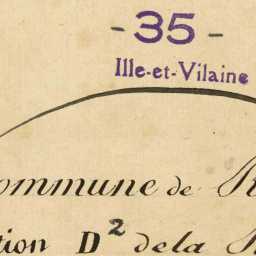 -35-
Ille-et-Vilaine
ommune de
tion D² de la